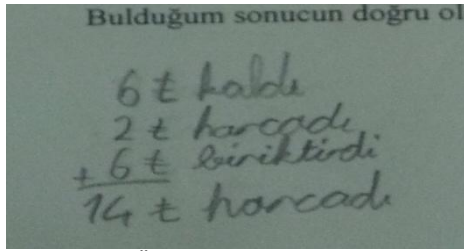 Bulduğum sonucun doğru ol
6 ₺ kaldı
2 ₺ harcadı
+ 6 ₺ biriktirdi
14 ₺ harcadı